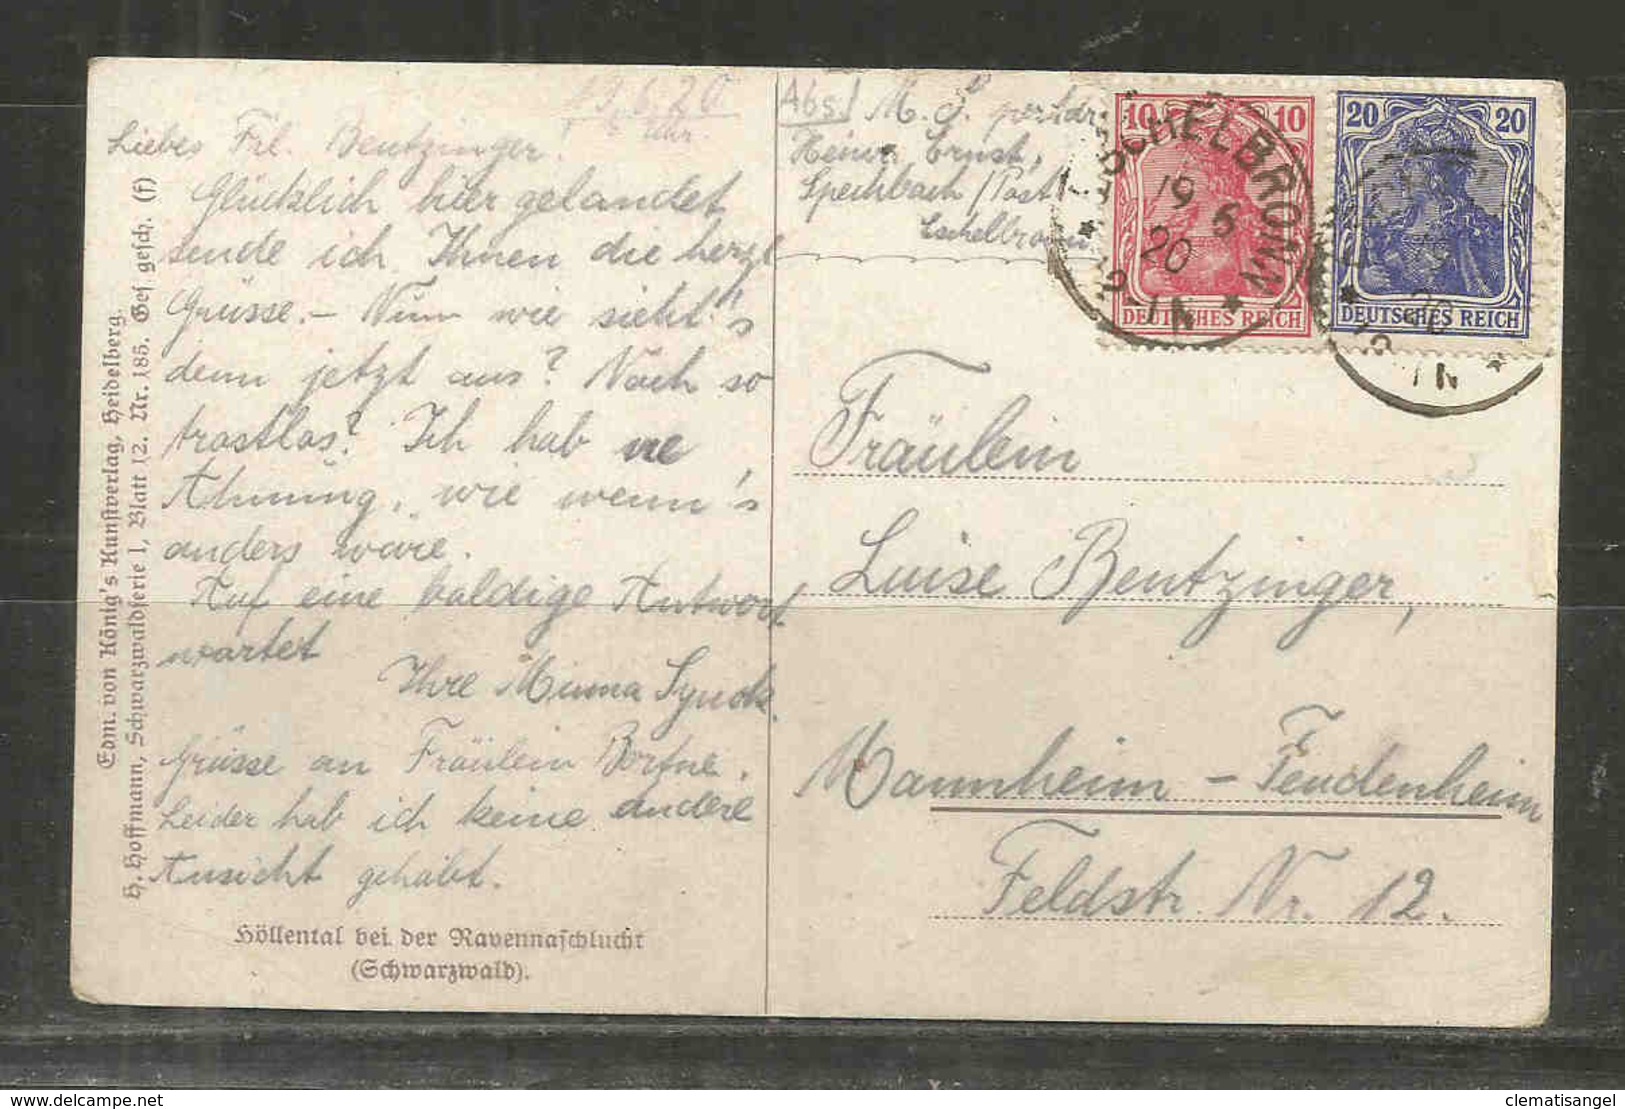 19.6.20
Uhr.
Liebes Frl. Bentzinger.
Glücklich hier gelandet
sende ich Ihnen die herzl
Grüsse. – Nun wie sieht's
denn jetzt aus? Noch so
trostlos? Ich hab ne
Ahnung, wie wenn's
anders wäre.
Auf eine baldige Antwort
wartet
Ihre Minna Synck.
Grüsse an Fräulein
Leider hab ich keine andere
Ansicht gehabt.
Höllental bei der Ravennaschlucht
(Schwarzwald).
Edm. von König's Kunstverlag, Heidelberg.
H. Hoffmann, Schwarzwaldserie I, Blatt 12. Nr. 185. Ges. gesch. (f)
Abs. M. S.
Heinr. Ernst,
Spechbach / Post
Eschelbronn
10 10
DEUTSCHES REICH
20 20
DEUTSCHES REICH
ESCHELBRONN
19 6
20
2-1N
Fräulein
Luise Bentzinger,
Mannheim – Feudenheim
Feldstr. Nr. 12.
clematisangel